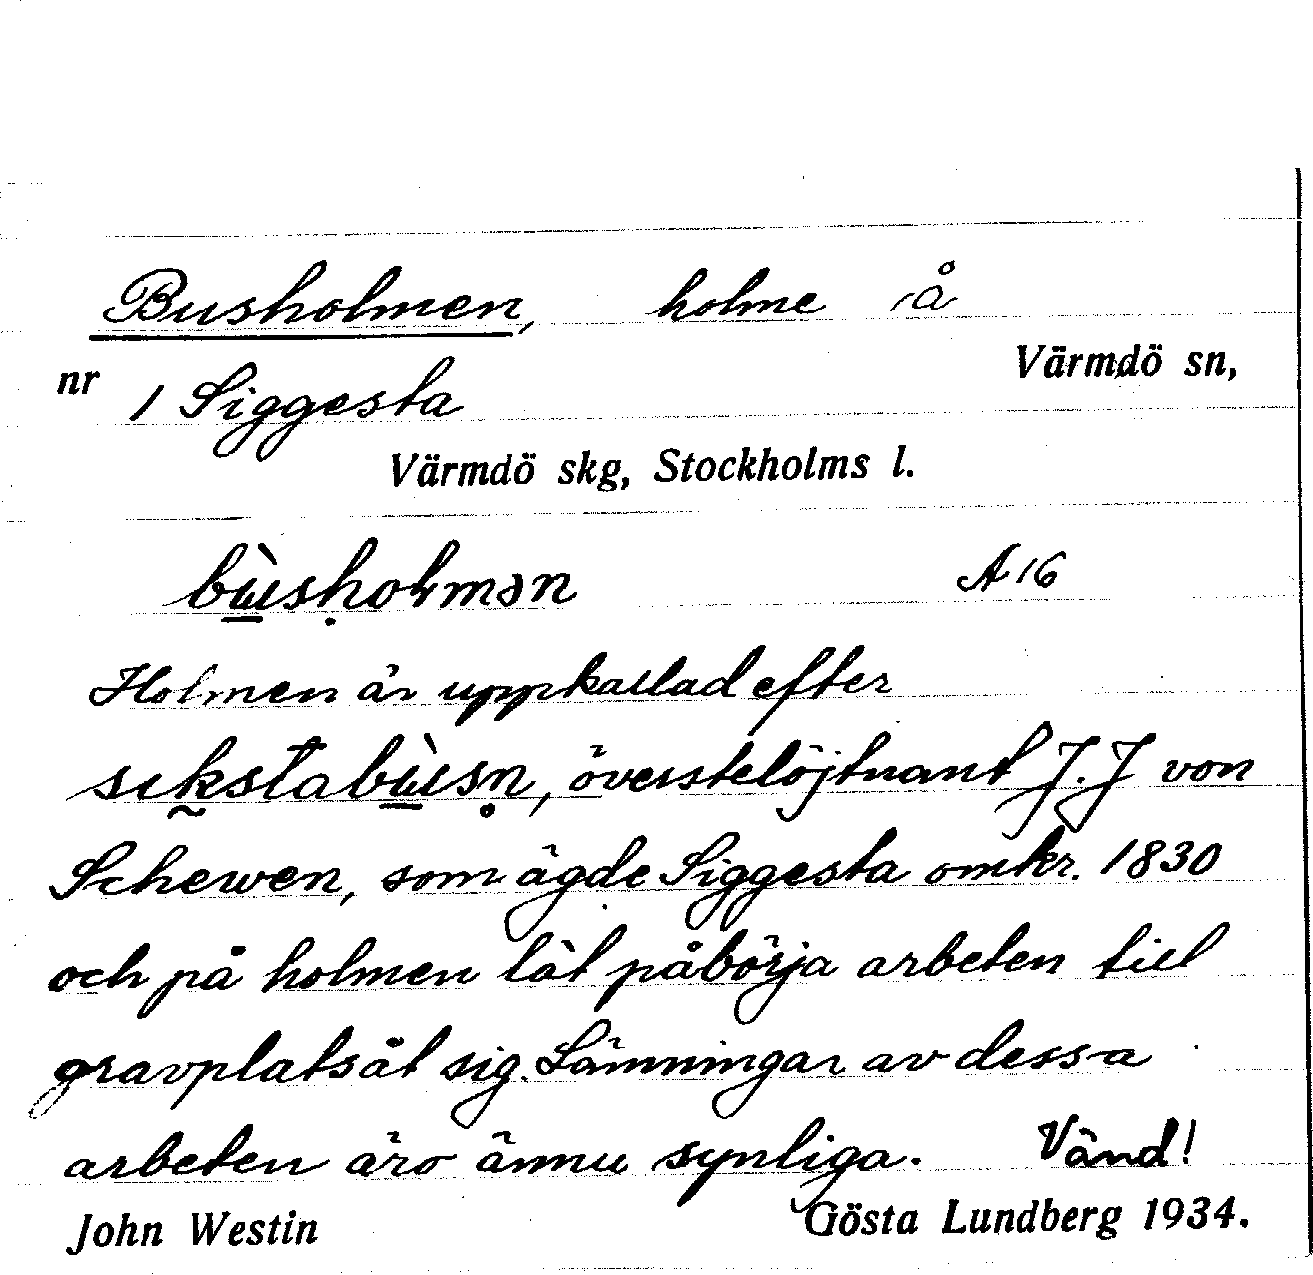 Busholmen, holme å
Värmdö sn,
nr 1 Siggesta
Värmdö skg, Stockholms l.
A 16
Holmen är uppkallad efter
överstelöjtnant J. J von
Schewen, som ägde Siggesta omkr. 1830
och på holmen lät påbörja arbeten till
gravplats åt sig. Lämningar av dessa
arbeten äro ännu synliga. Vänd!
John Westin Gösta Lundberg 1934.